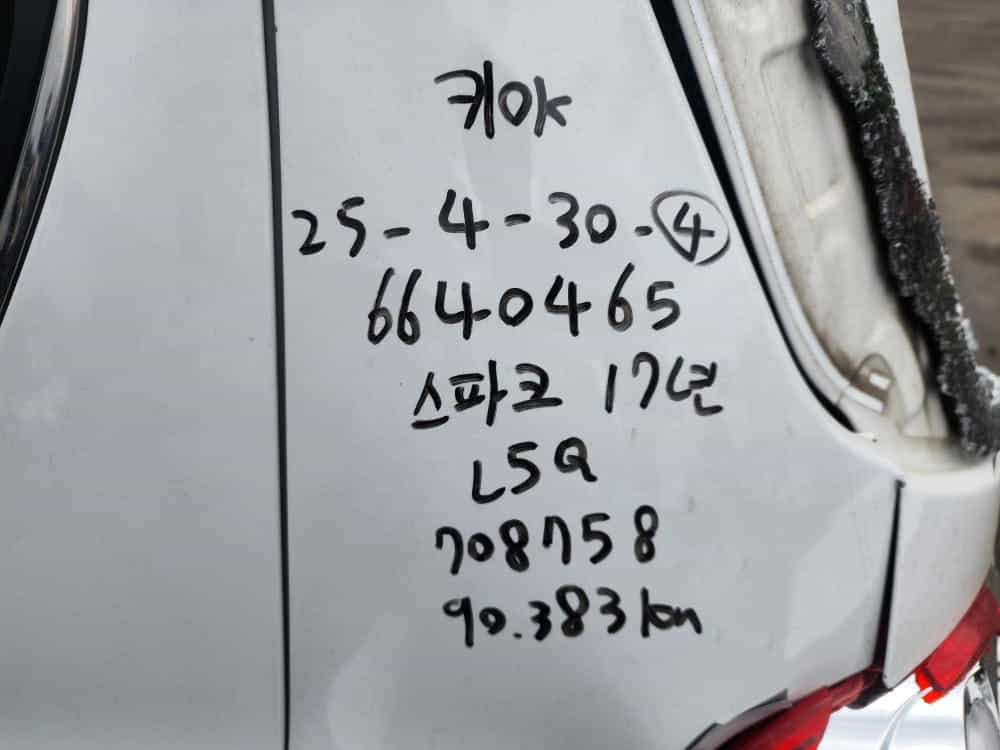 키아
25-4-30-④
6640465
스파크 17년
L5Q
708758
90.383km